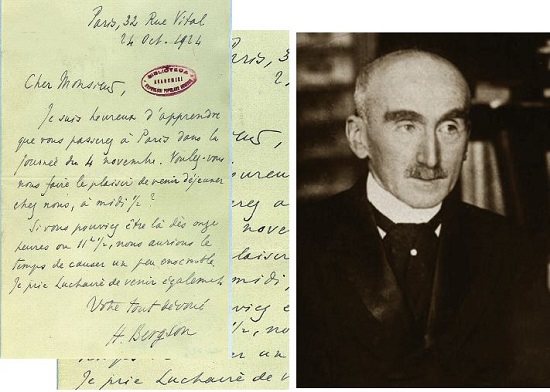 Paris, 32 Rue Vital
24 Oct. 1924
BIBLIOTECA
ACADEMIEI
Cher Monsieur,
Je suis heureux d'apprendre
que vous passerez à Paris dans la
journée du 4 novembre. Voulez-vous
nous faire le plaisir de venir déjeuner
chez nous, à midi ½ ?
Si vous pouviez être là dès onze
heures ou 11h ½, nous aurions le
temps de causer un peu ensemble.
Je prie Luchaire de venir également
Votre tout dévoué
H. Bergson
Je prie Luchaire de v